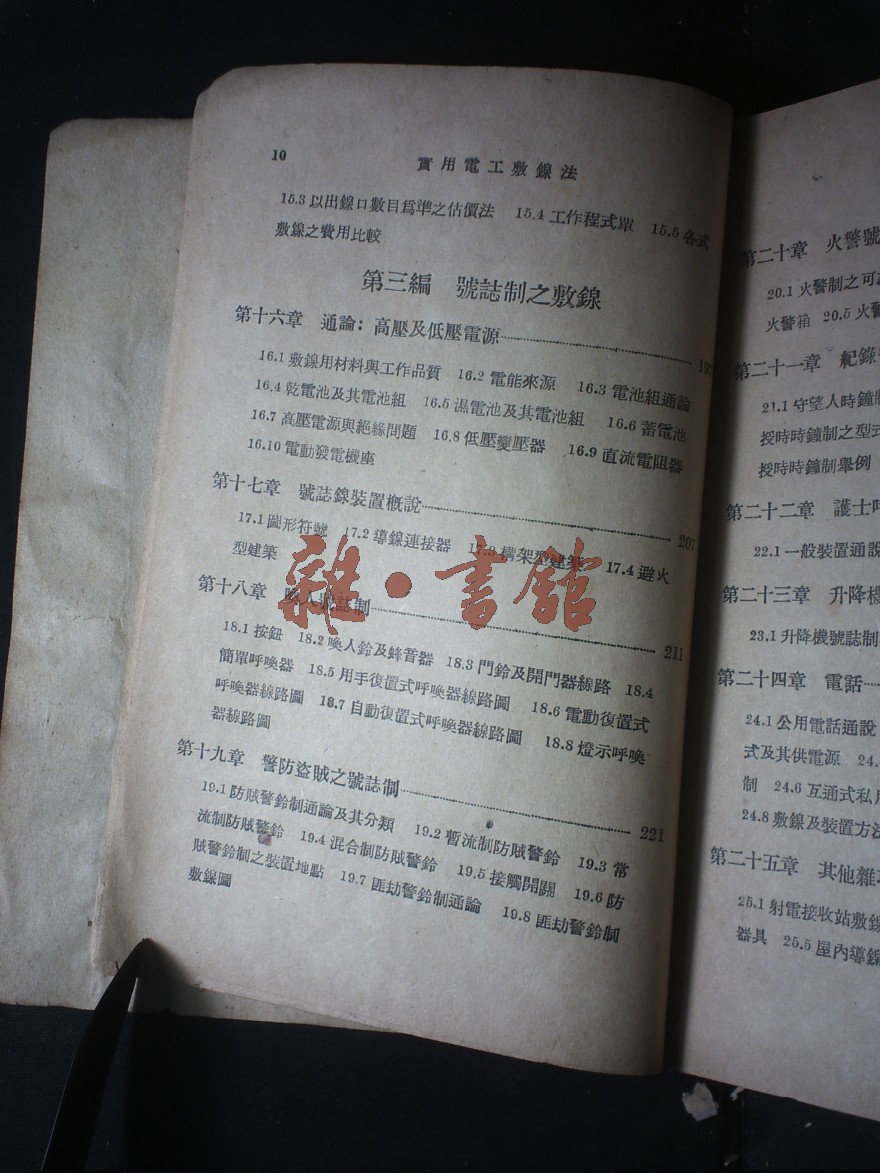 10
實用電工敷線法
15.3 以出線口數目爲準之估價法 15.4 工作程式單 15.5 各式
敷線之費用比較
第三編 號誌制之敷線
第十六章 通論：高壓及低壓電源
16.1 敷線用材料與工作品質 16.2 電能來源 16.3 電池組通論
16.4 乾電池及其電池組 16.5 濕電池及其電池組 16.6 蓄電池
16.7 高壓電源與絶緣問題 16.8 低壓變壓器 16.9 直流電阻器
16.10 電動發電機座
第十七章 號誌線裝置概說 207
17.1 圖形符號 17.2 導線連接器 17.3 構架型建築 17.4 避火
型建築
第十八章 喚人號誌制 211
18.1 按鈕 18.2 喚人鈴及蜂音器 18.3 門鈴及開門器線路 18.4
簡單呼喚器 18.5 用手復置式呼喚器線路圖 18.6 電動復置式
呼喚器線路圖 18.7 自動復置式呼喚器線路圖 18.8 燈示呼喚
器線路圖
第十九章 警防盜賊之號誌制 221
19.1 防賊警鈴制通論及其分類 19.2 暫流制防賊警鈴 19.3 常
流制防賊警鈴 19.4 混合制防賊警鈴 19.5 接觸開關 19.6 防
賊警鈴制之裝置地點 19.7 匪劫警鈴制通論 19.8 匪劫警鈴制
敷線圖
雜·書館
第二十章 火警號
20.1 火警制之可
火警箱 20.5 火警
第二十一章 紀錄
21.1 守望人時鐘制
授時時鐘制之型式
授時時鐘制舉例
第二十二章 護士呼
22.1 一般裝置通說
第二十三章 升降機
23.1 升降機號誌制
第二十四章 電話
24.1 公用電話通說
式及其供電源 24.
制 24.6 互通式私用
24.8 敷線及裝置方法
第二十五章 其他雜
25.1 射電接收站敷線
器具 25.5 屋內導線